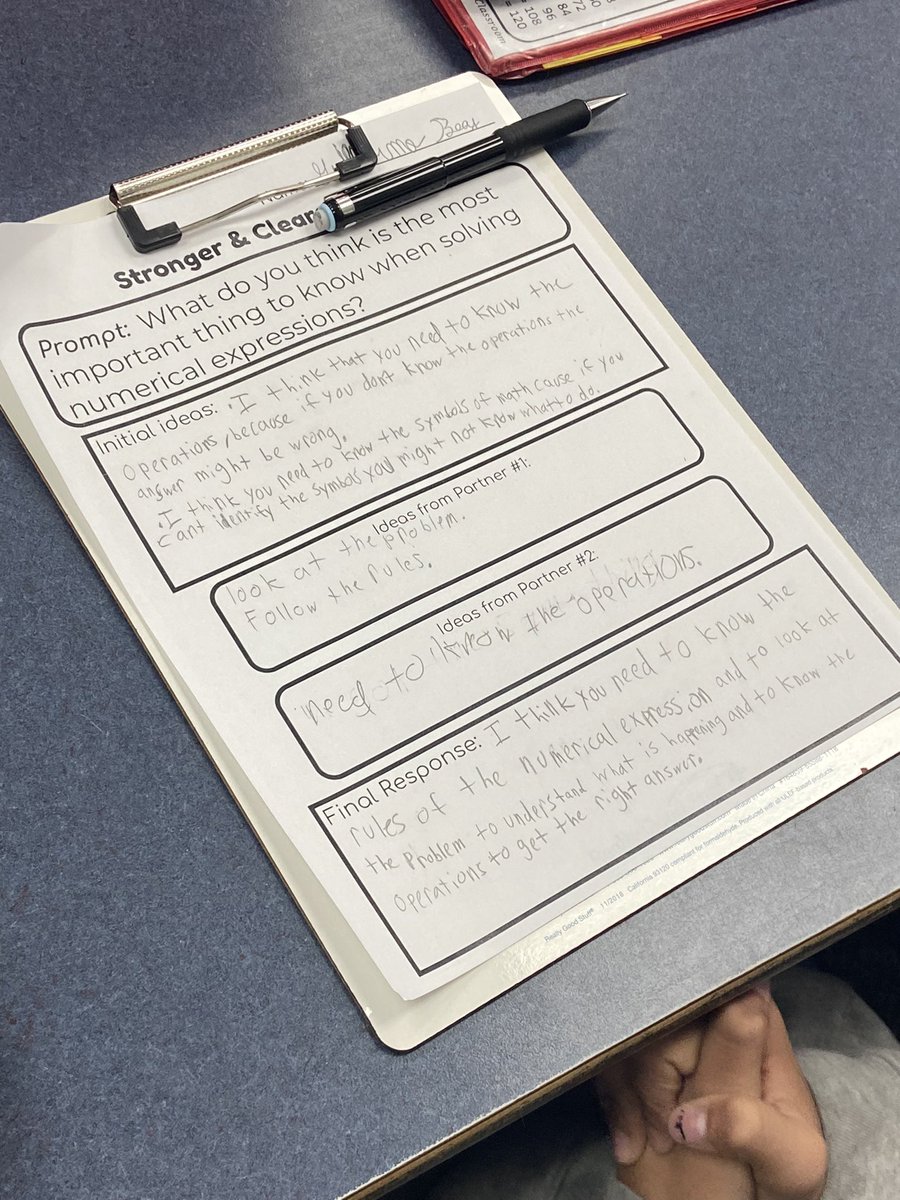 Classroom
72
84
96
= 108
= 120
Stronger & Clear
Prompt: What do you think is the most
important thing to know when solving
numerical expressions?
Initial ideas: . I think that you need to know the
operations, because if you dont know the operations the
answer might be wrong.
. I think you need to know the symbols of math cause if you
cant identify the symbols you might not know what to do.
Ideas from Partner #1:
look at the problem.
Follow the rules.
Ideas from Partner #2:
need to know the operations.
Final Response: I think you need to know the
rules of the numerical expression and to look at
the problem to understand what is happening and to know the
operations to get the right answer.
Really Good Stuff® 11/2018 California 93120 compliant for formaldehyde. Produced with all ULEF-based products.